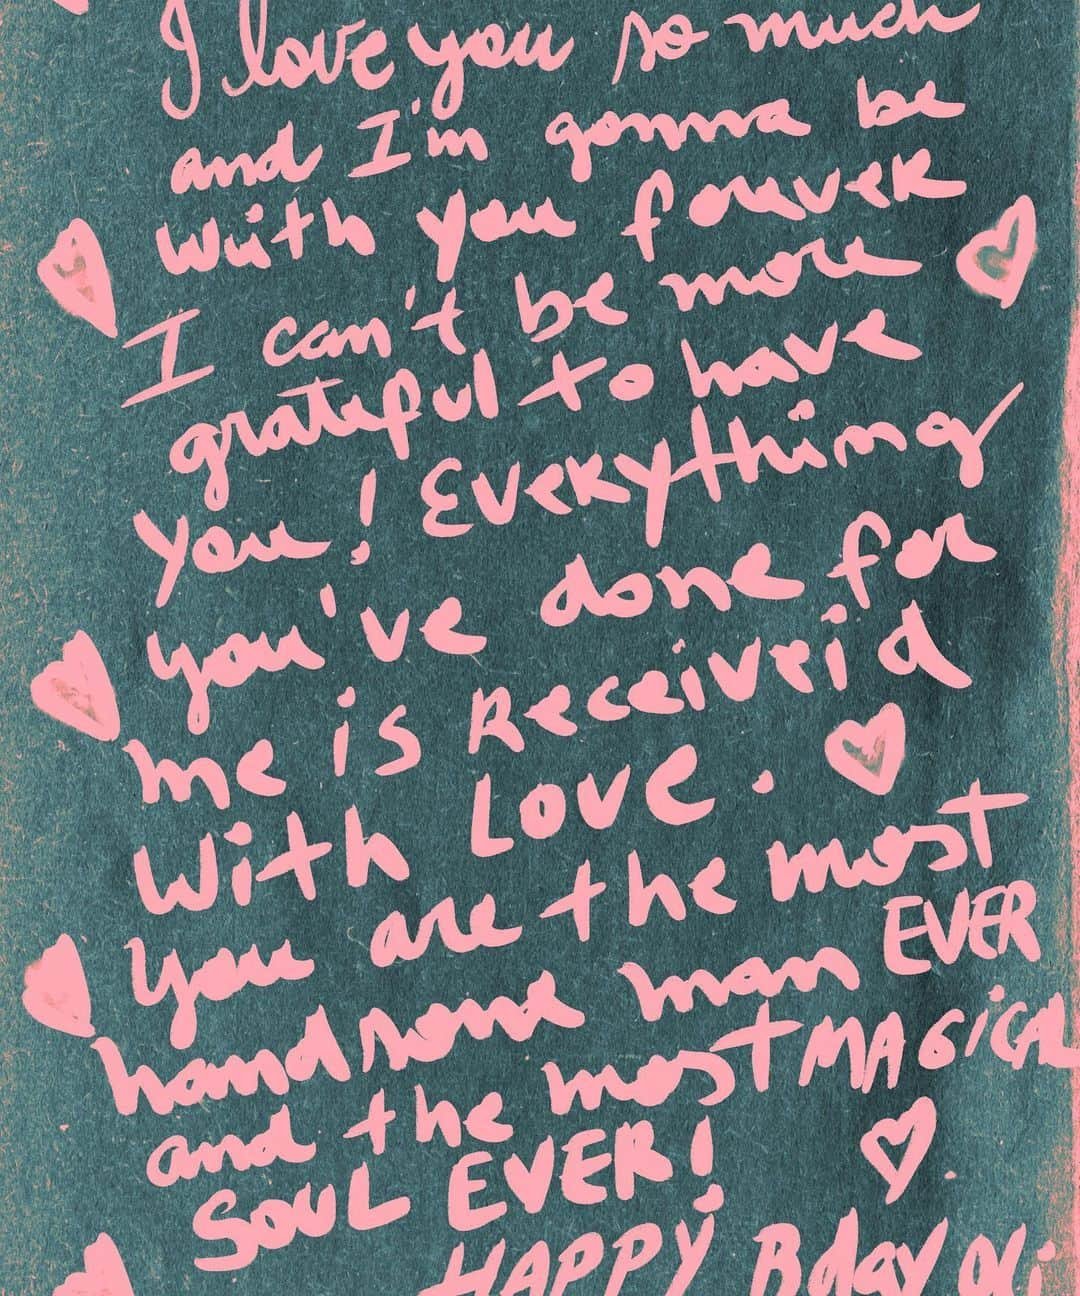 I love you so much
and I'm gonna be
with you forever
I can't be more
grateful to have
you! Everything
you've done for
me is Received
with Love.
you are the most
handsome man EVER
and the most MAGICAL
SOUL EVER!
HAPPY Bday